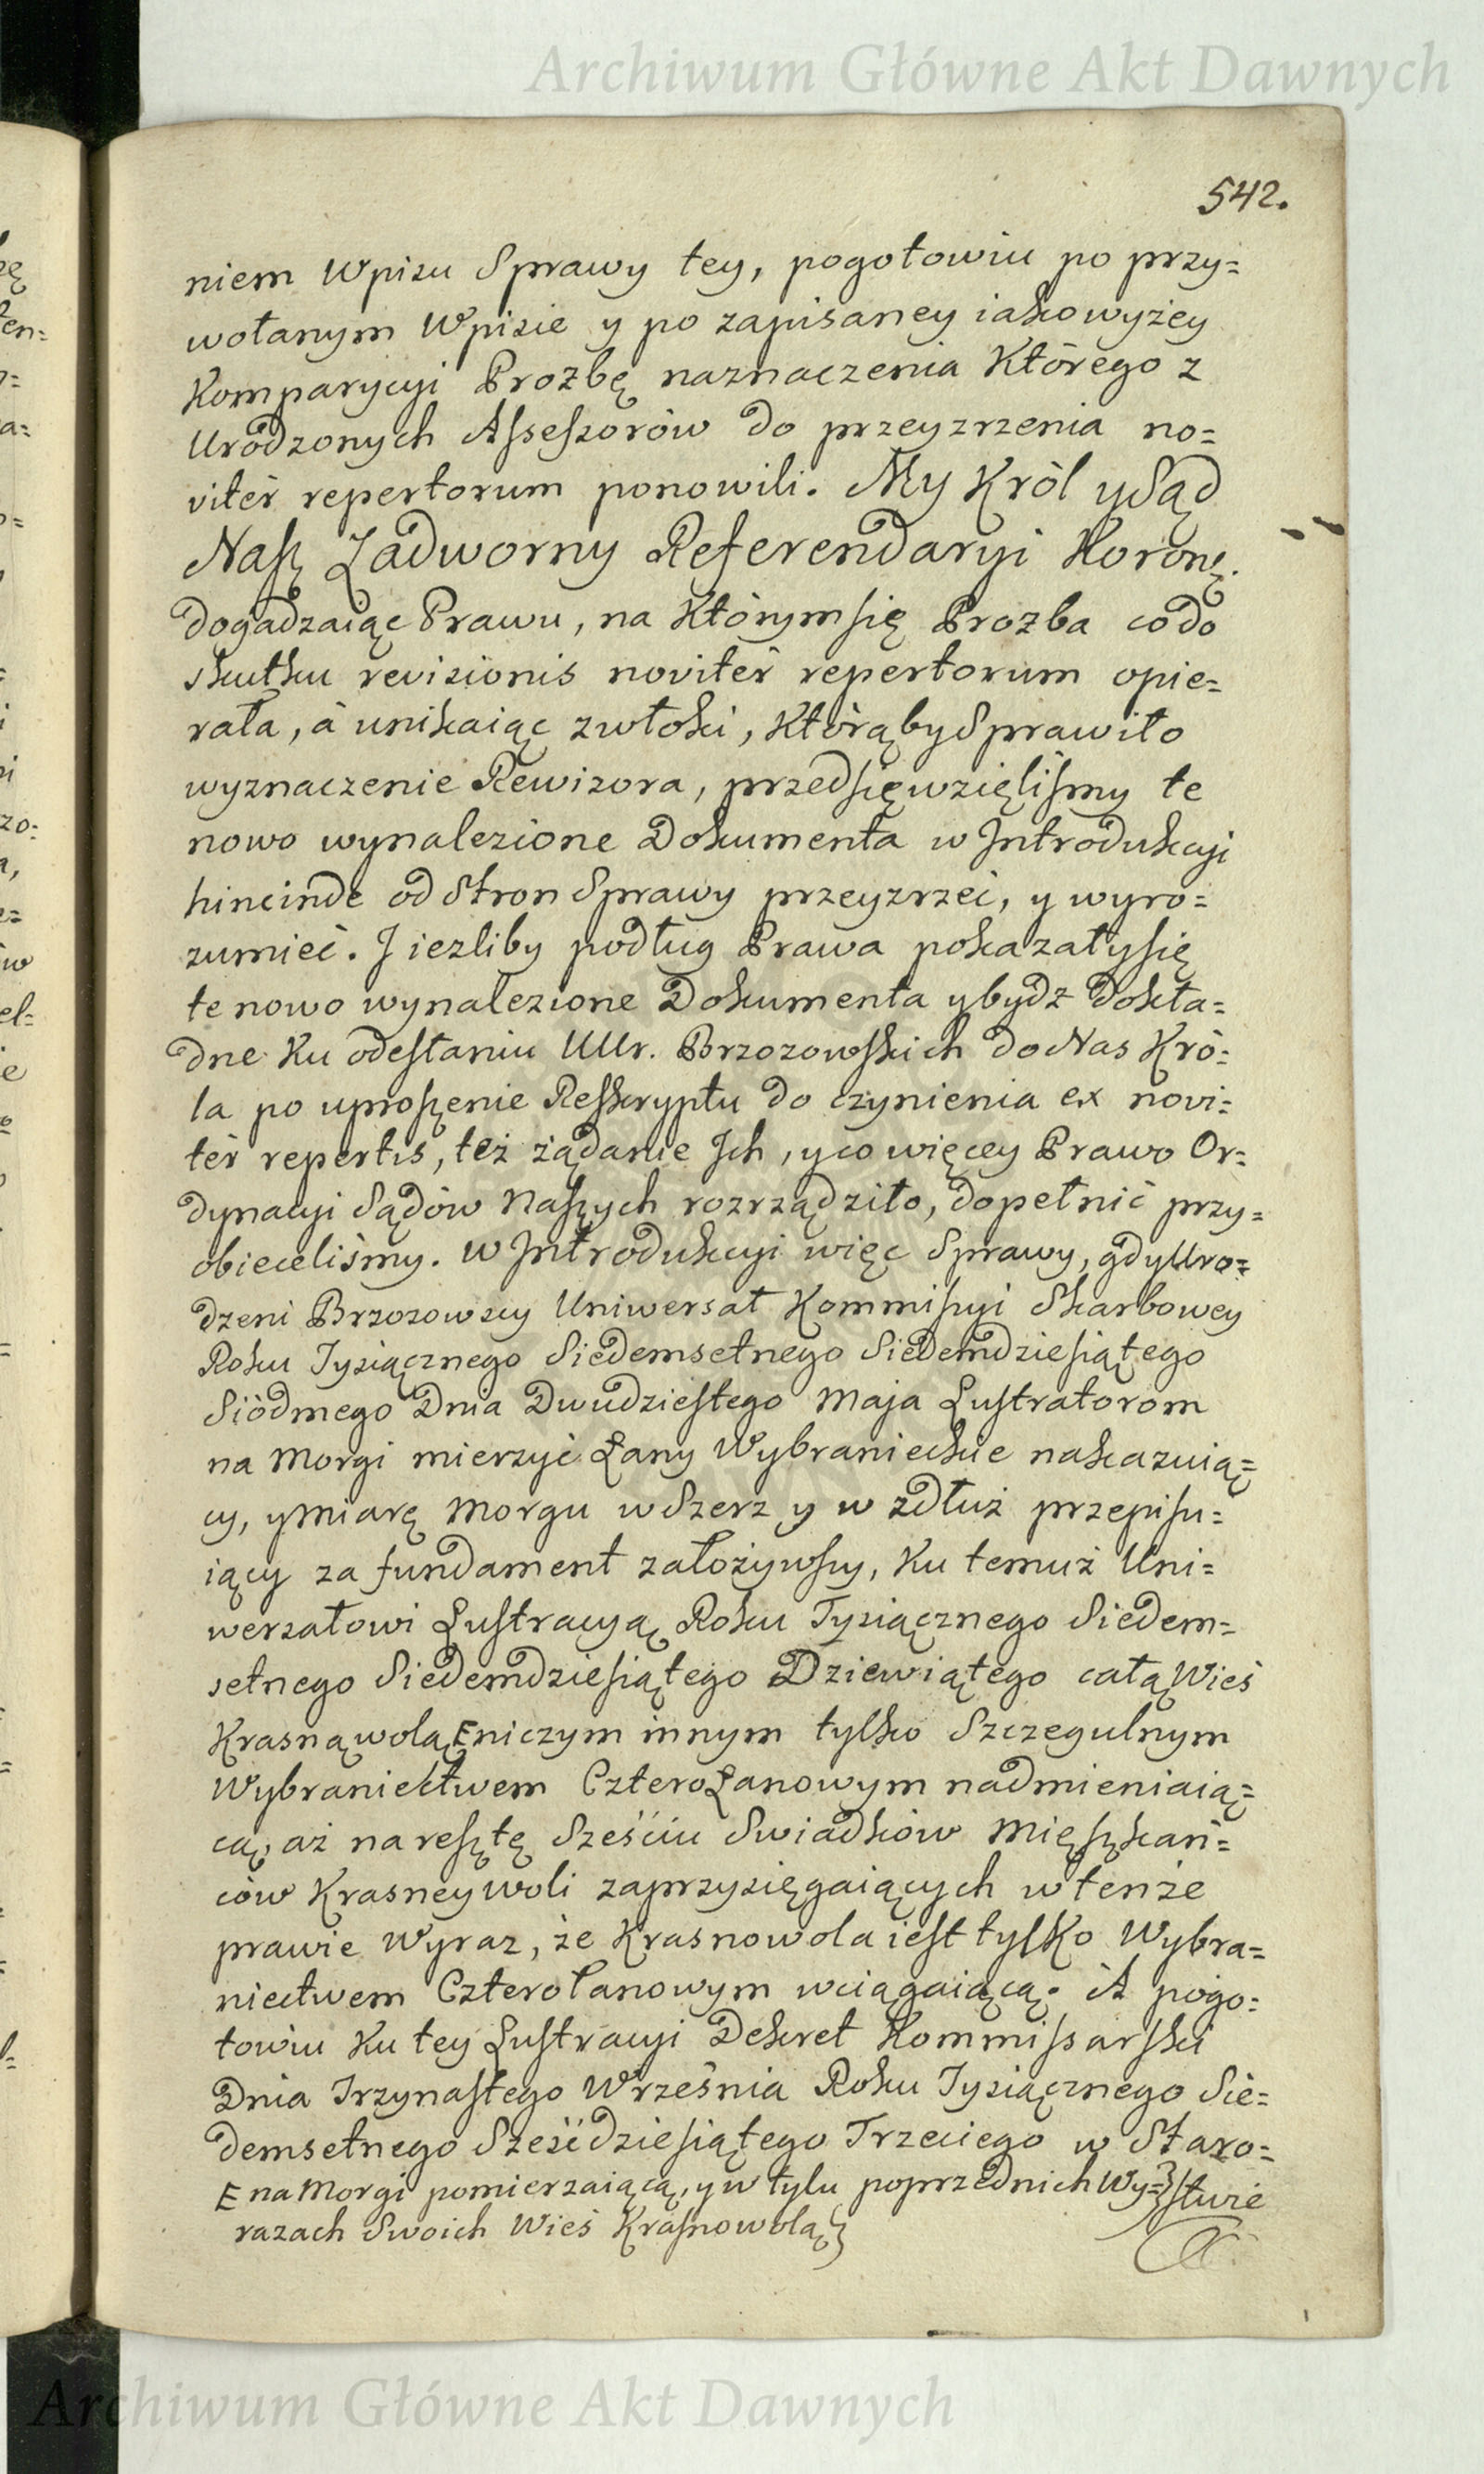 Archiwum Główne Akt Dawnych
542.
niem Wpisu Sprawy tey, pogotowiu po przy=
wołanym Wpisie y po zapisaney iakowyżey
Komparycyi Prozbę naznaczenia Którego z
Urodzonych Assessorów do przeyzrzenia no=
vitèr repertorum ponowili. My Król y Sąd
Nasz Zadworny Referendaryi Koronę.
dogadzaiąc Prawu, na Którym się Prozba co do
skutku revisionis novitèr repertorum opie=
rała, à unikaiąc zwłoki, Którąby Sprawiło
wyznaczenie Rewizora, przedsięwzięliśmy te
nowo wynalezione Dokumenta w Introdukcyi
hincinde od Stron Sprawy przeyzrzeć, y wyro=
zumieć. J iezliby podług Prawa pokazały się
te nowo wynalezione Dokumenta y bydz dokła=
dne Ku odesłaniu UUr. Brzozowskich do Nas Kró=
la po uproszenie Reskryptu do czynienia ex novi=
tèr repertis, też żądanie Jch, y co więcey Prawo Or=
dynacyi Sądów Naszych rozrządziło, dopełnić przy=
obieceliśmy. W Introdukcyi więc Sprawy, gdy Uro=
dzeni Brzozowscy Uniwersał Kommissyi Skarbowey
Roku Tysiącznego Siedemsetnego Siedemdziesiątego
Siódmego Dnia Dwudziestego Maja Lustratorom
na Morgi mierzyć Łany Wybranieckie nakazuią=
cy, y Miarę Morgu w Szerz y w zdłuż przepisu=
iący za fundament założywszy, Ku temuż Uni=
wersałowi Lustracyą Roku Tysiącznego Siedem=
setnego Siedemdziesiątego Dziewiątego całą Wieś
Krasnąwolą E niczym innym tylko Szczegulnym
Wybraniectwem CzteroŁanowym nadmieniaią=
cą, aż na resztę Sześciu Swiadków Mięszkań=
ców Krasneywoli zaprzysięgaiących w tenże
prawie Wyraz, że Krasnowola iest tylko Wybra=
niectwem Czterołanowym wciągaiącą. A pogo=
towiu Ku tey Lustracyi Dekret Kommissarski
Dnia Trzynastego Września Roku Tysiącznego Sie=
demsetnego Sześćdziesiątego Trzeciego w Staro=
E na Morgi pomierzaiącą, y w tylu poprzednich Wy=} stwie
razach Swoich Wieś Krasnowolą}
Archiwum Główne Akt Dawnych